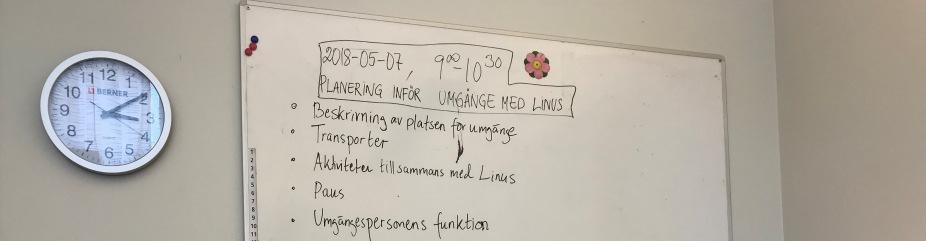 2018-05-07, 9⁰⁰-10³⁰
PLANERING INFÖR UMGÄNGE MED LINUS
• Beskrivning av platsen för umgänge
• Transporter
• Aktiviteter tillsammans med Linus
• Paus
• Umgängespersonens funktion
11 12 1
10 BERNER 2
9 3
8 4
7 6 5